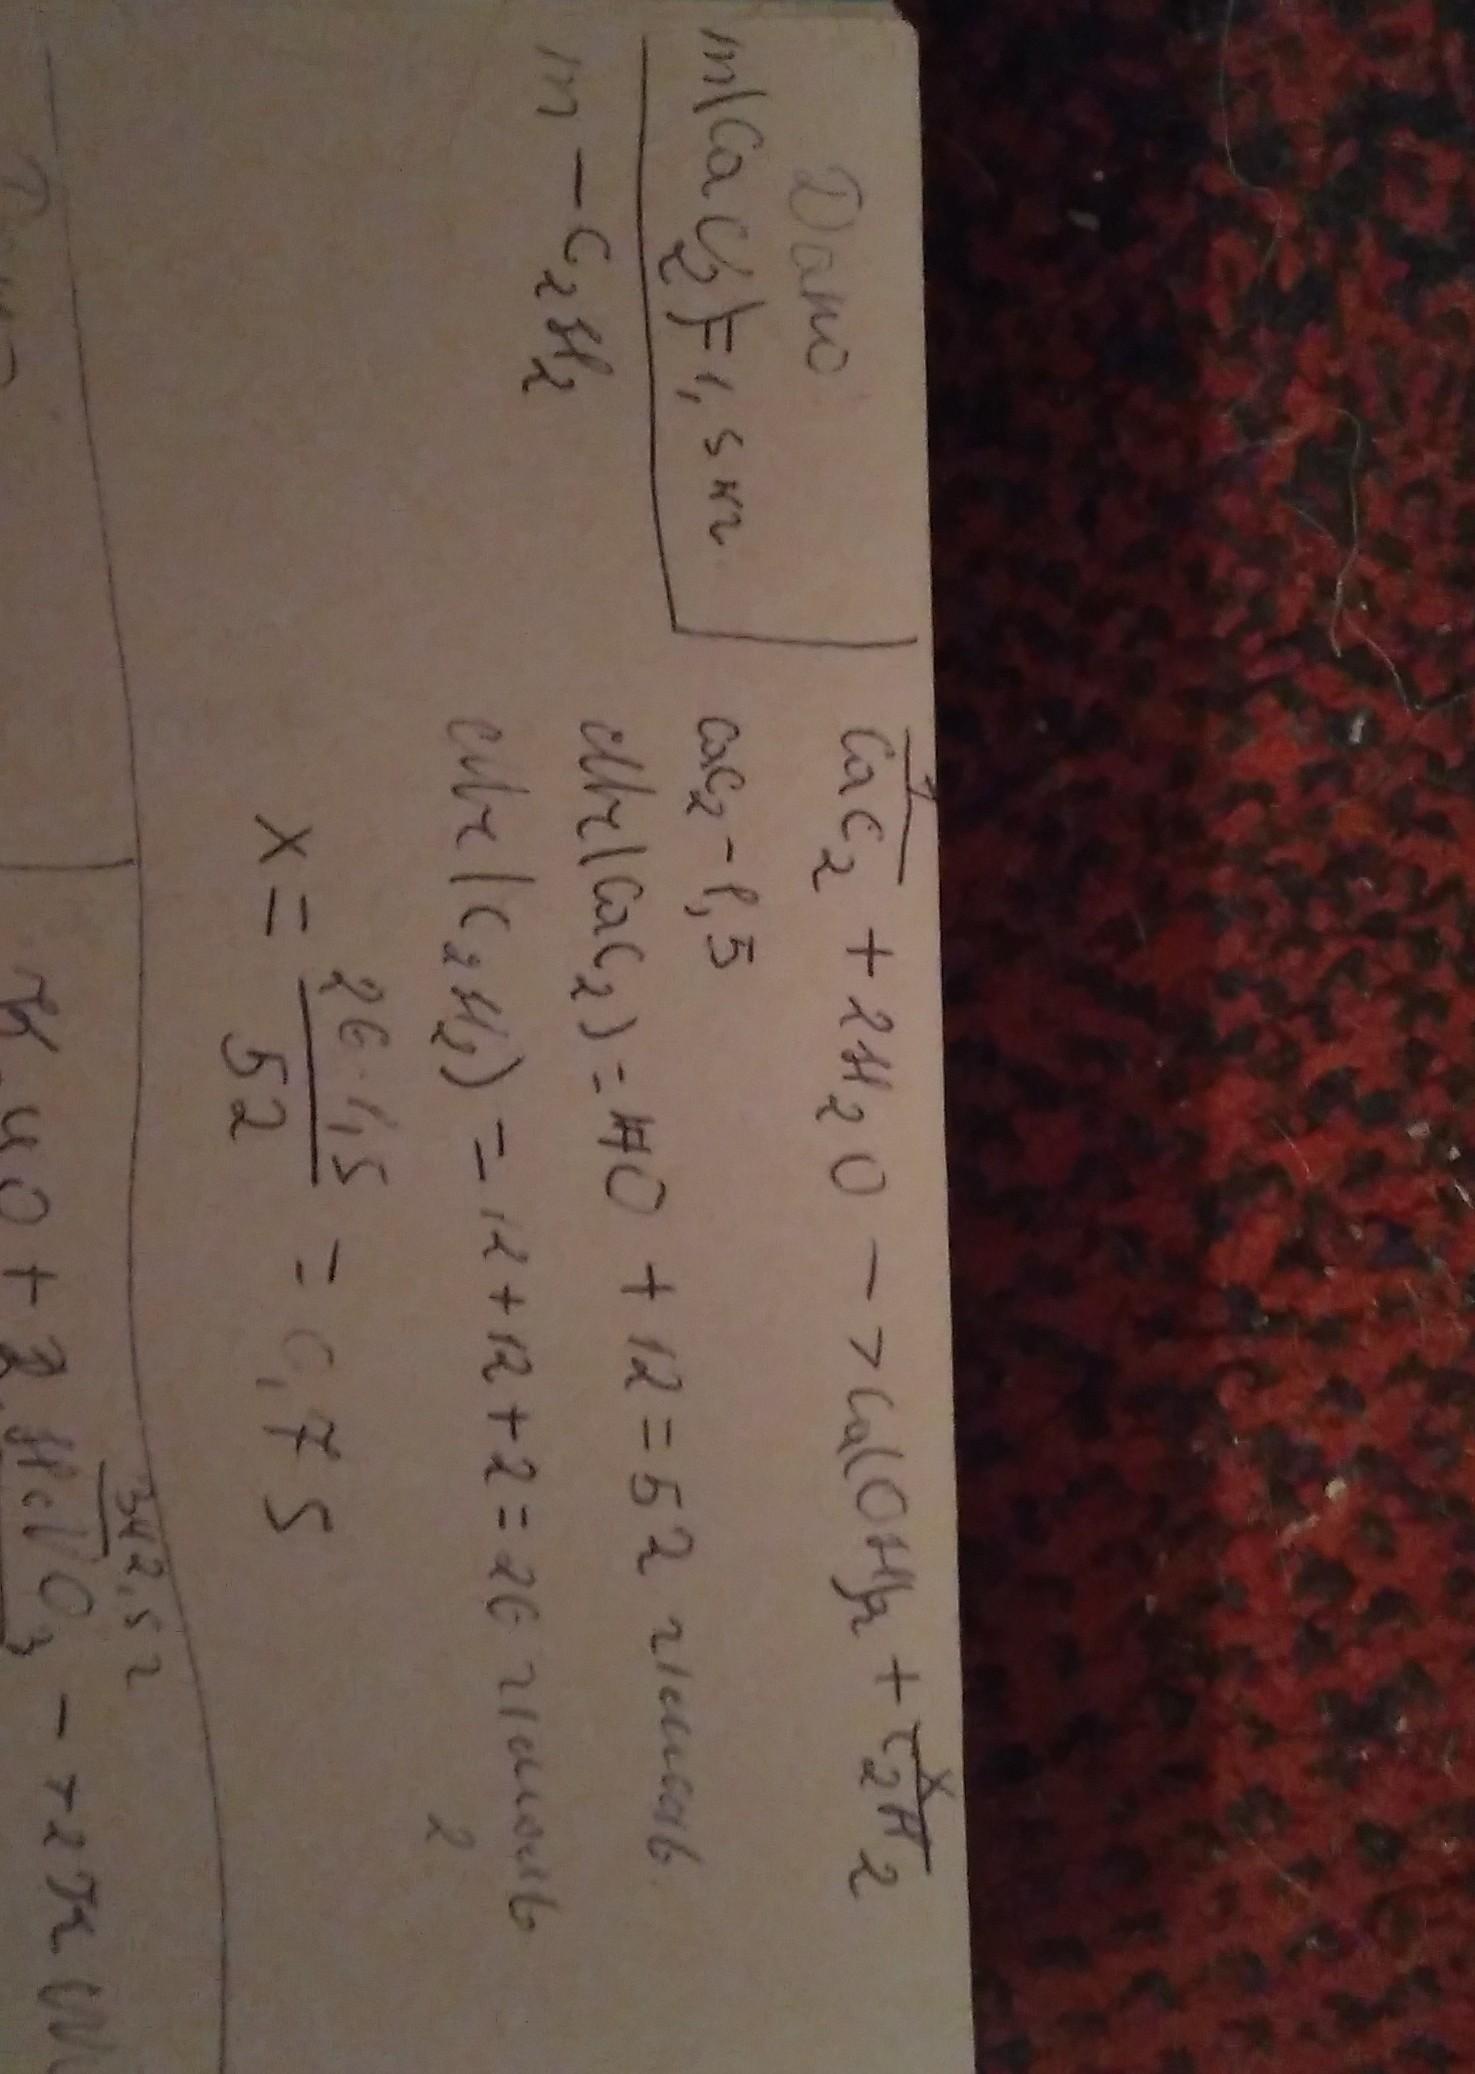 Дано
m(CaC2)=1,5 кг
m - C2H2
CaC2 + 2H2O -> Ca(OH)2 + C2H2
x
CaC2 - 1,5
Mr(CaC2) = 40 + 12 = 52 г/моль
Mr(C2H2) = 12+12+2=26 г/моль
2
x = 26·1,5 / 52 = 0,75
342,52
40 + 2